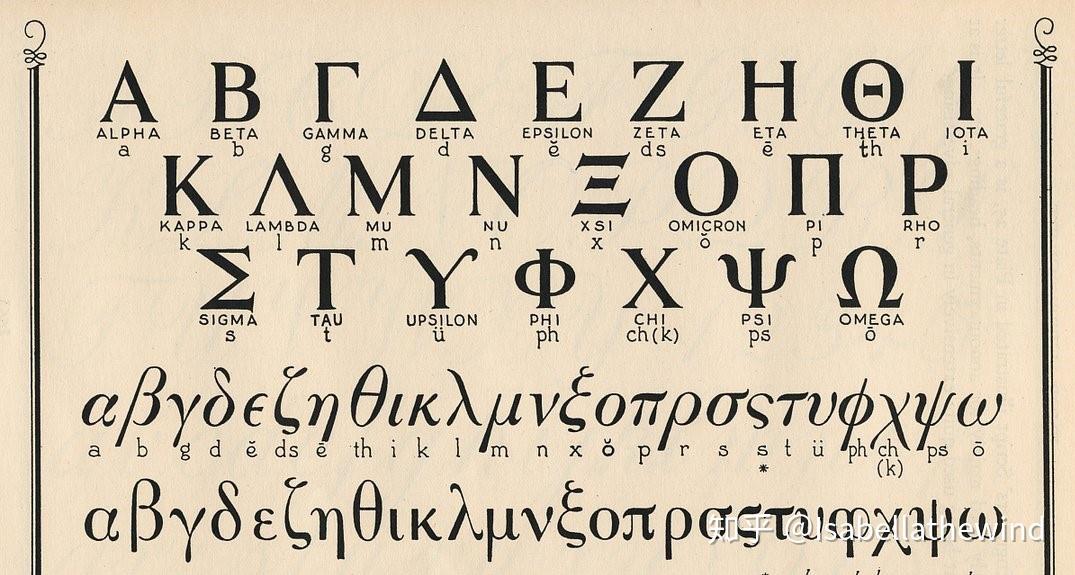 Α Β Γ Δ Ε Ζ Η Θ Ι
ALPHA BETA GAMMA DELTA EPSILON ZETA ETA THETA IOTA
a b g d ĕ ds ē th i
Κ Λ Μ Ν Ξ Ο Π Ρ
KAPPA LAMBDA MU NU XSI OMICRON PI RHO
k l m n x ŏ p r
Σ Τ Υ Φ Χ Ψ Ω
SIGMA TAU UPSILON PHI CHI PSI OMEGA
s t ü ph ch(k) ps ō
α β γ δ ε ζ η θ ι κ λ μ ν ξ ο π ρ σ ς τ υ φ χ ψ ω
a b g d ĕ ds ē th i k l m n x ŏ p r s s t ü ph ch ps ō
* (k)
α β γ δ ε ζ η θ ι κ λ μ ν ξ ο π ρ σ ς τ υ φ χ ψ ω
知乎 @Isabellathewind